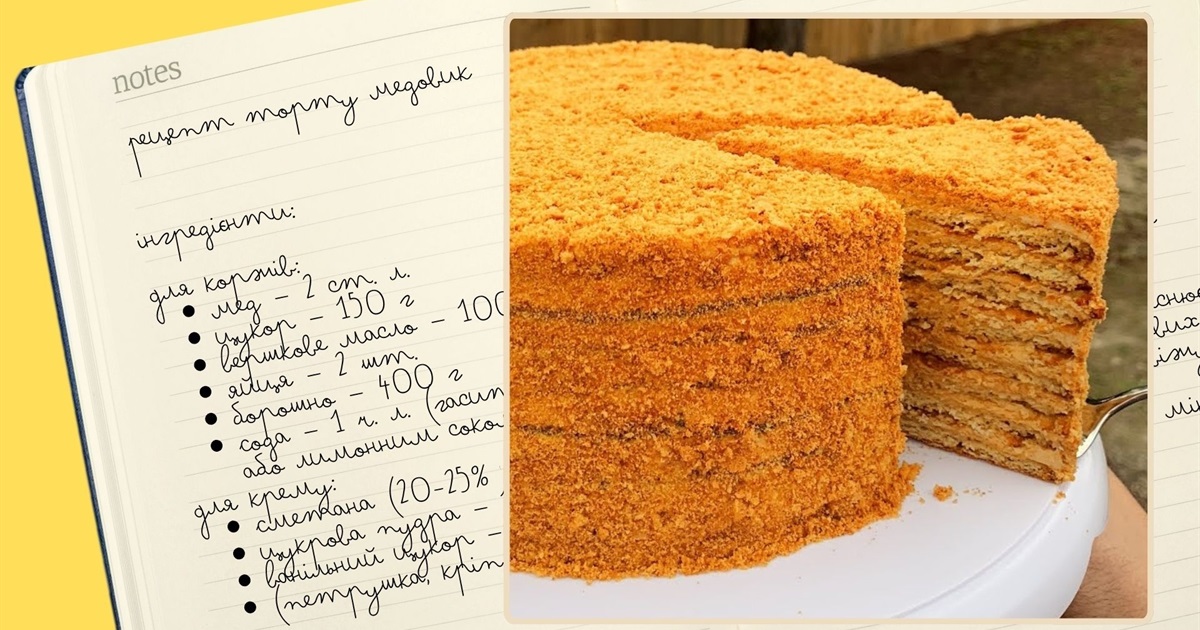 notes
рецепт торту медовик
інгредієнти:
для коржів:
● мед – 2 ст. л.
● цукор – 150 г
● вершкове масло – 100
● яйця – 2 шт.
● борошно – 400 г
● сода – 1 ч. л. (гасит
або лимонним соко
для крему:
● сметана (20-25%
● цукрова пудра –
● ванільний цукор –
● (петрушка, кріп